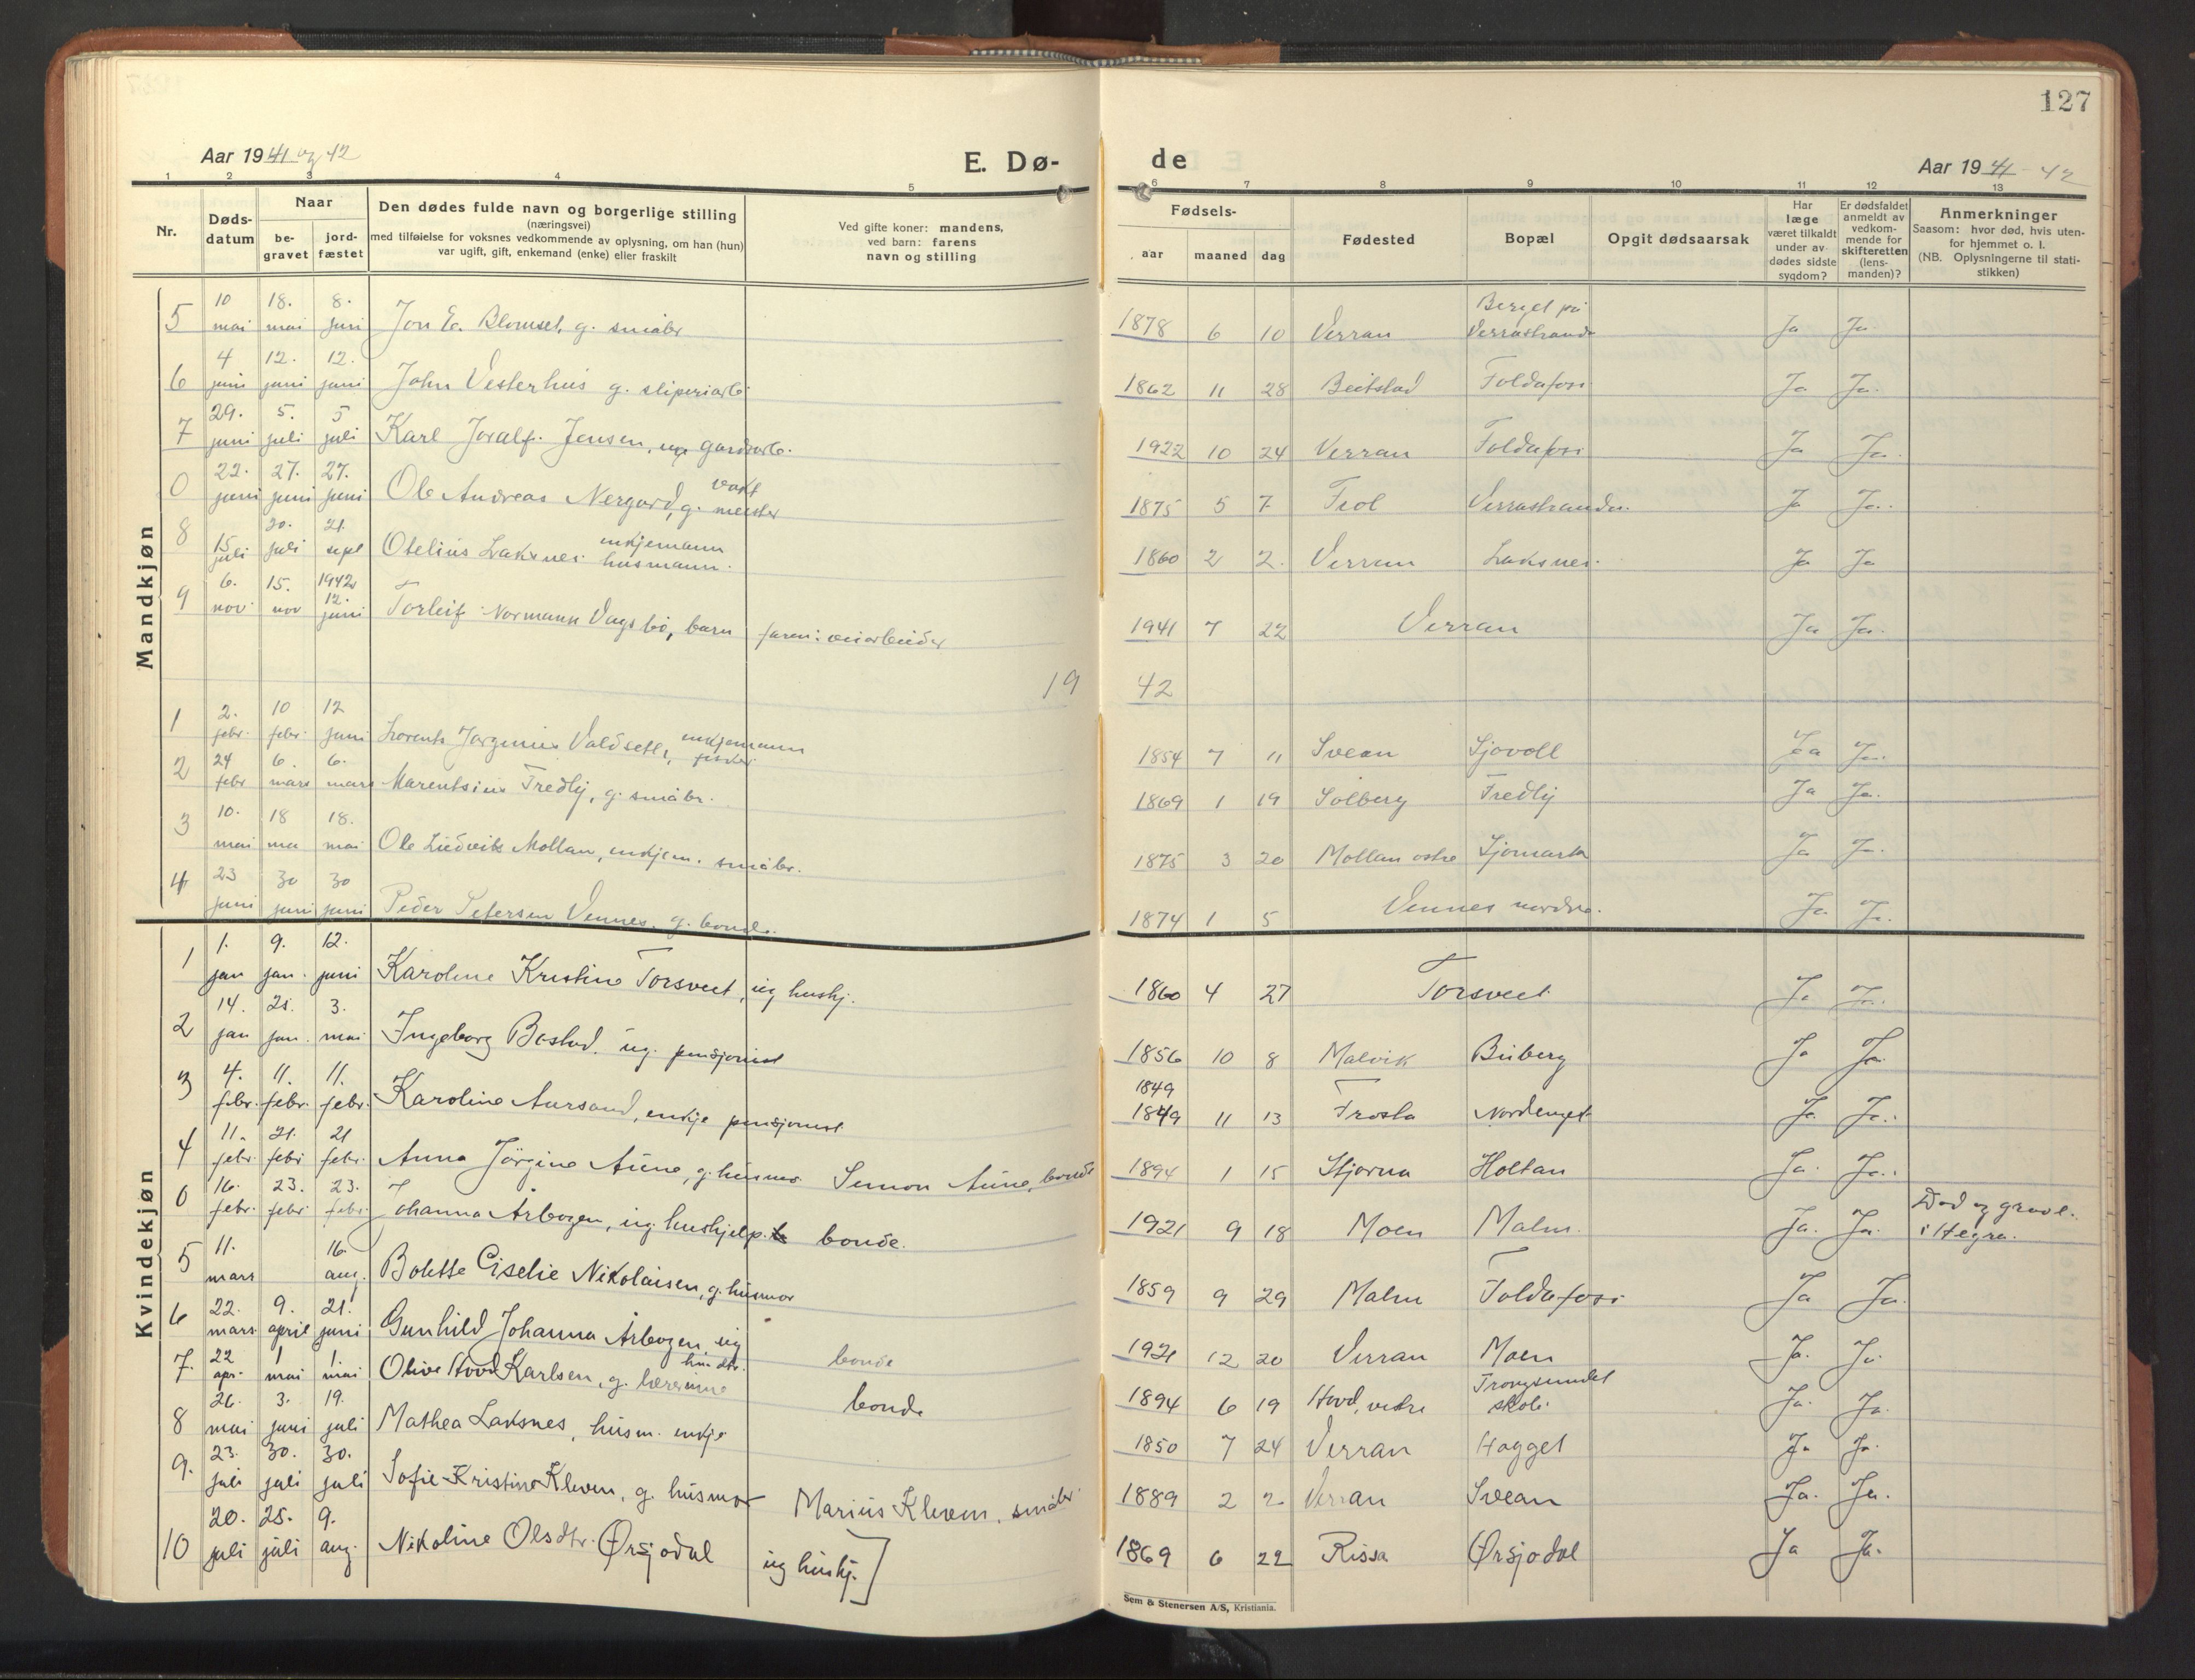 127
Aar 1941 og 42
E. Dø-
de
Aar 1941 - 42
1 2 3 4 5 6 7 8 9 10 11 12 13
Nr.
Døds-
datum
Naar
be-
gravet
jord-
fæstet
Den dødes fulde navn og borgerlige stilling
(næringsvei)
med tilføielse for voksnes vedkommende av oplysning, om han (hun)
var ugift, gift, enkemand (enke) eller fraskilt
Ved gifte koner: mandens,
ved barn: farens
navn og stilling
Fødsels-
aar maaned dag
Fødested
Bopæl
Opgit dødsaarsak
Har
læge
været tilkaldt
under av-
dødes sidste
sygdom?
Er dødsfaldet
anmeldt av
vedkom-
mende for
skifteretten
(lens-
manden)?
Anmerkninger
Saasom: hvor død, hvis uten-
for hjemmet o. l.
(NB. Oplysningerne til stati-
stikken)
Mandkjøn
10 18. 8. Berget på
5 mai mai juni Jon E. Blomset, g. småbr 1878 6 10 Verran Verrastrande Ja Ja.
4 12. 12.
6 juni juni juni John Vesterhus g. sliperiarb 1862 11 28 Beitstad Foldafoss Ja Ja.
29. 5. 5
7 juni juli juli Karl Joralf Jensen, ug gardsarb. 1922 10 24 Verran Foldafoss Ja Ja.
22. 27. 27. vakt
0 juni juni juni Ole Andreas Nergård, g. mester 1875 5 7 Feol Verrastranden. Ja Ja.
20. 21. enkjemann
8 15 juli juli sept Otelius Laksnes husmann. 1860 2 2. Verran Laksnes. Ja Ja
6. 15. 1942 12.
9 nov. nov juni Torleif Normann Vagsbø, barn faren: veiarbeider 1941 7 22 Verran Ja Ja.
19 42
2. 10 12 enkjemann
1 febr. febr. juni Lorents Jørginius Valdsetl, fisker 1854 7 11 Svean Sjøvoll Ja Ja.
24 6. 6.
2 febr mars mars Marentsius Fredly, g. småbr. 1869 1 19 Solberg Fredly Ja Ja.
10. 18 18.
3 mai ma mai Ole Ludvik Mollan, enkjem. småbr. 1875 3 20 Mollan østre Sjømark Ja Ja.
23 30 30
4 juni juni juni Peder Petersen Vennes. g. bonde. 1874 1 5 Vennes nordre. Ja Ja.
Kvindekjøn
1. 9. 12.
1 jan jan. juni Karoline Kristine Torsveet, ug hushj. 1860 4 27 Torsveet Ja Ja.
14. 21. 3.
2 jan jan. mai Ingeborg Bostad, ug. pensjonist 1856 10 8 Malvik Buberg Ja Ja.
4. 11. 11. 1849
3 febr. febr. febr. Karoline Aursand, enkje pensjonist 1849 11 13 Frosta Nordenget Ja Ja.
11. 21. 21
4 febr. febr febr. Anna Jörgine Aune, g. husmor Simon Aune, bonde 1894 1 15 Stjørna Holtan Ja. Ja.
16. 23. 23. Død og gravl.
0 febr. febr. febr. Johanna Arbogen, ug. hushjelp. bonde. 1921 9 18 Moen Malm. Ja. Ja. i Hegra.
11. 16.
5 mars aug. Bolette Giselie Nikolaisen, g. husmor 1859 9 29 Malm Foldafoss Ja Ja.
22. 9. 21.
6 mars april juni Gunhild Johanna Arbogen, ug husdtr. bonde 1921 12 20 Verran Moen Ja. Ja.
22 1 1. Trongsundet
7. apr. mai mai Olive Hovd Karlsen, g. lærerinne bonde 1894 6 19 Hovd, vestre skole. Ja. Ja.
26. 3. 19.
8 mai juni juli Mathea Laksnes, husm. enkje 1850 7 24 Verran Hagget Ja Ja.
23. 30. 30.
9. juli juli juli Sofie Kristine Kleven, g. husmor Marius Kleven, småbr. 1889 2 2 Verran Svean Ja. Ja.
20. 25. 9.
10 juli juli aug. Nikoline Olsdtr. Ørsjødal ug hushj.] 1869 6 22 Rissa Ørsjødal Ja Ja.
Sem & Stenersen A/S, Kristiania.